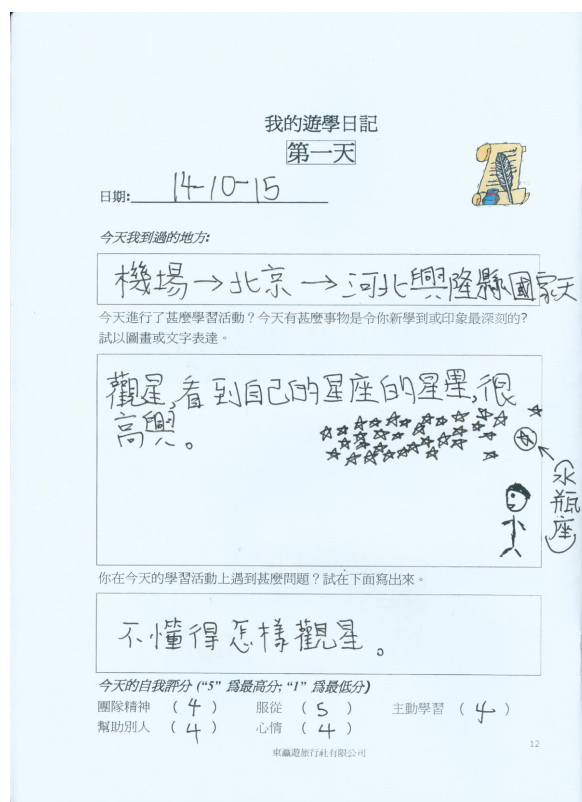 我的遊學日記
第一天
日期:14-10-15
今天我到過的地方:
機場→北京→河北興隆縣國家天
今天進行了甚麼學習活動？今天有甚麼事物是令你新學到或印象最深刻的？
試以圖畫或文字表達。
觀星,看到自己的星座的星星,很
高興。
(水瓶座)
你在今天的學習活動上遇到甚麼問題？試在下面寫出來。
不懂得怎樣觀星。
今天的自我評分 (“5” 爲最高分; “1” 爲最低分)
團隊精神 ( 4 ) 服從 ( 5 ) 主動學習 ( 4 )
幫助別人 ( 4 ) 心情 ( 4 )
東瀛遊旅行社有限公司
12